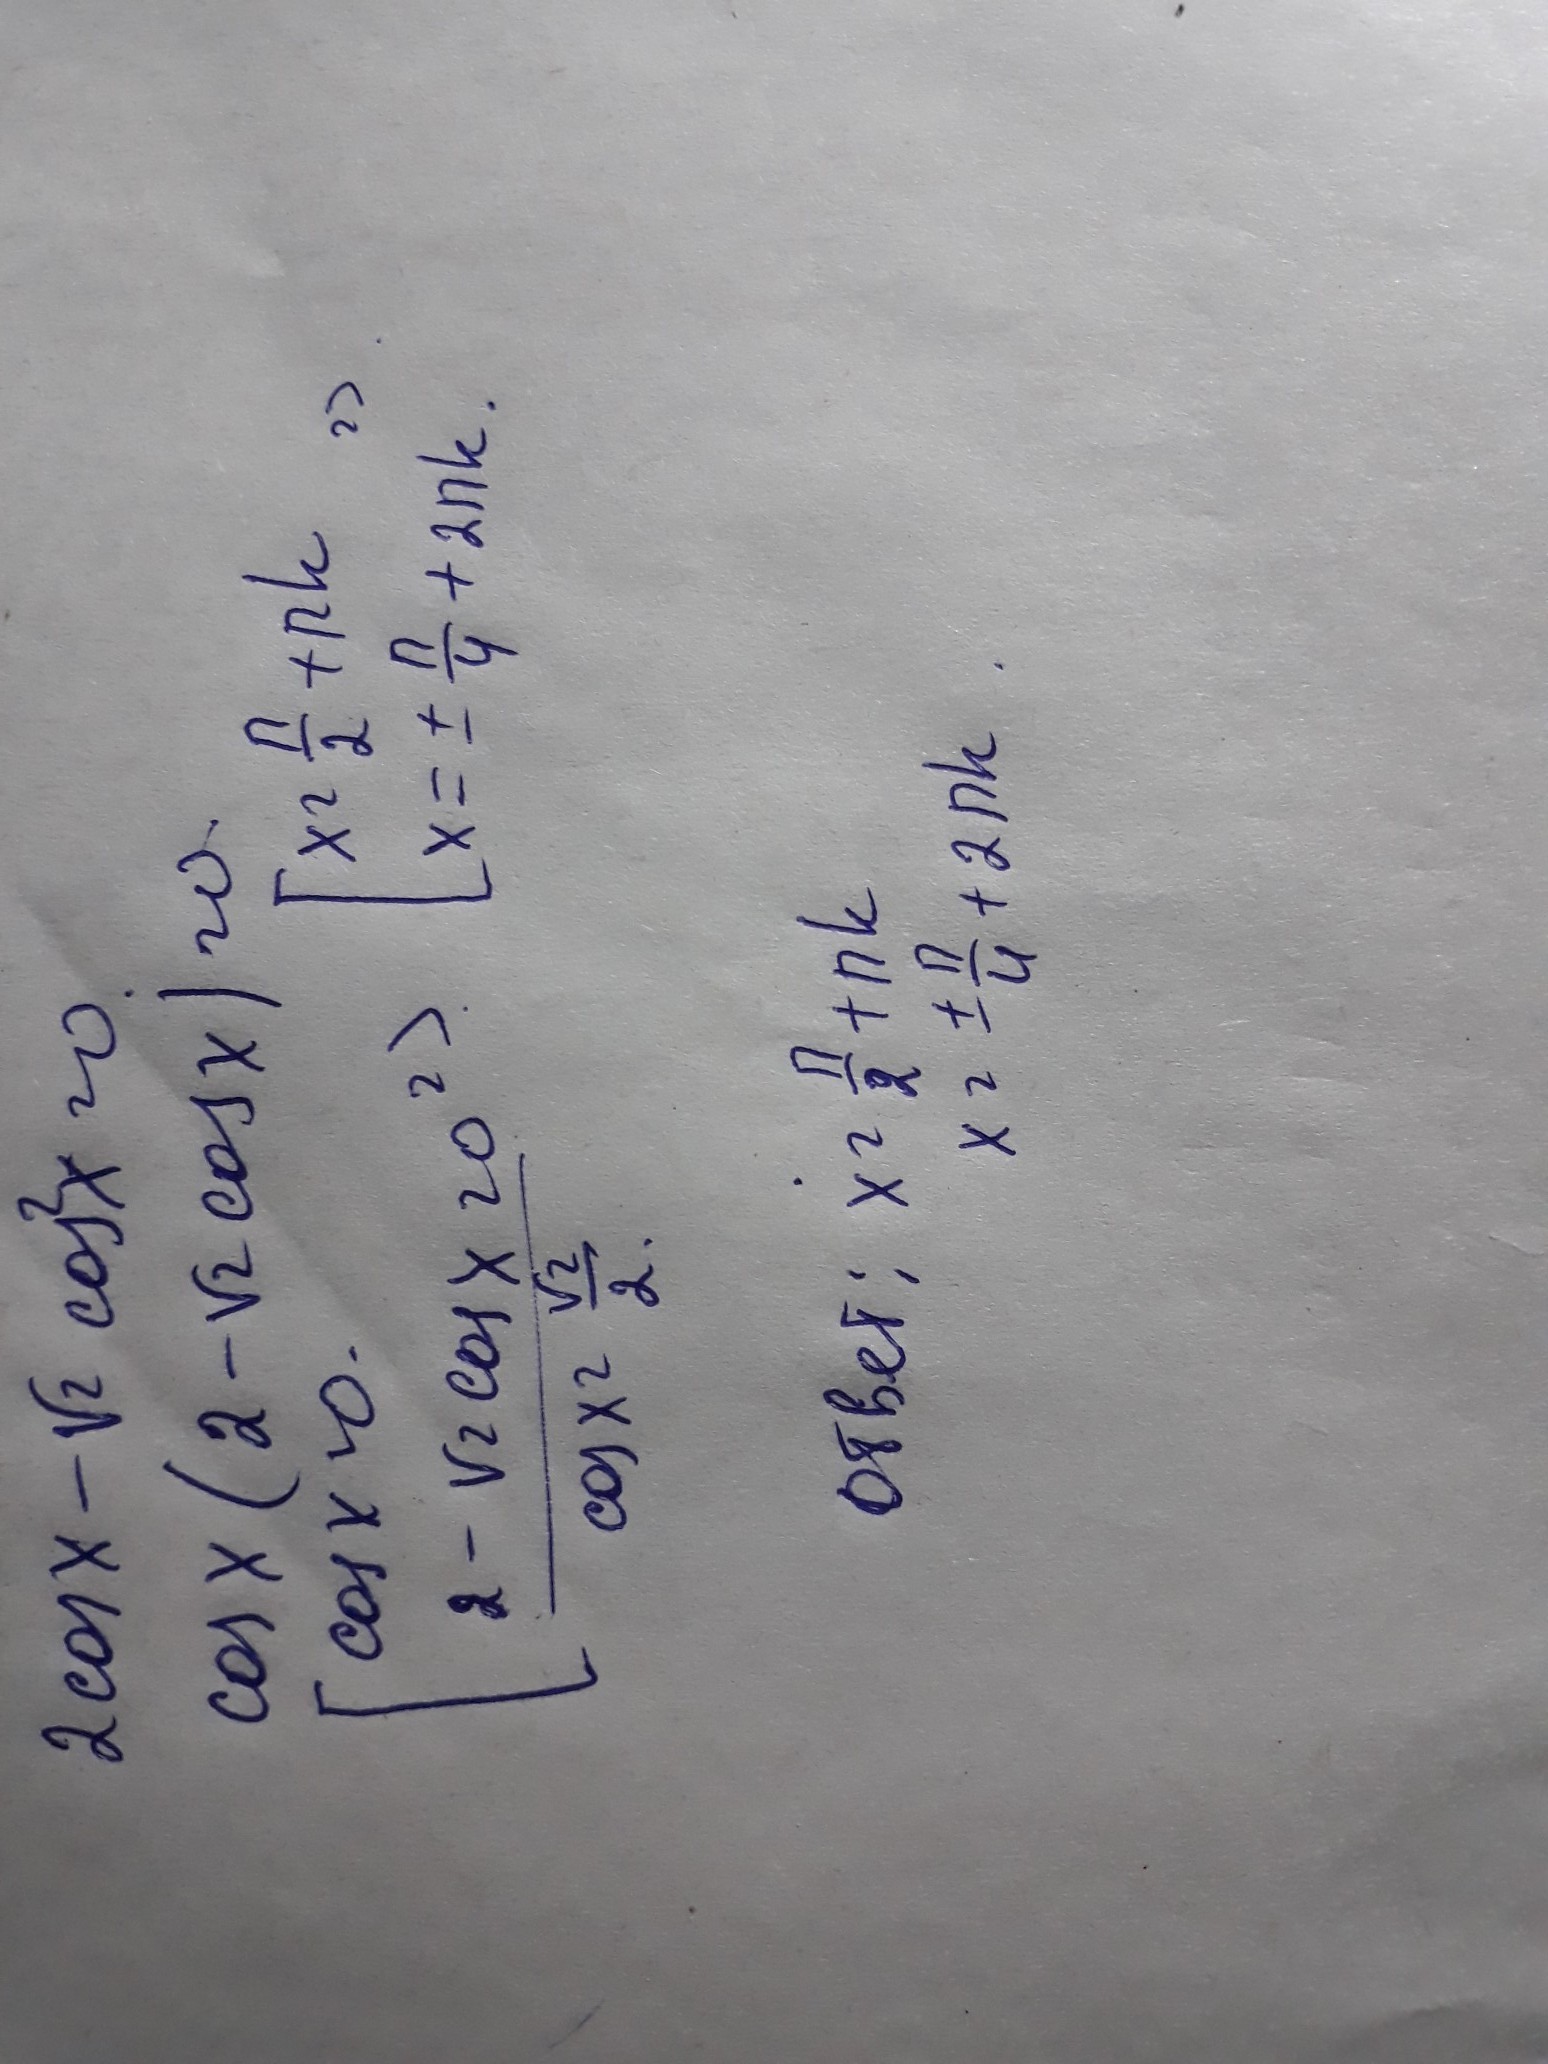 2cosx - √2 cos²x = 0.
cosx (2 - √2 cosx) = 0.
[ cosx = 0.
2 - √2 cosx = 0 =>
cosx = √2/2.
[ x = π/2 + πk =>
x = ± π/4 + 2πk.
Ответ: x = π/2 + πk
x = ± π/4 + 2πk.